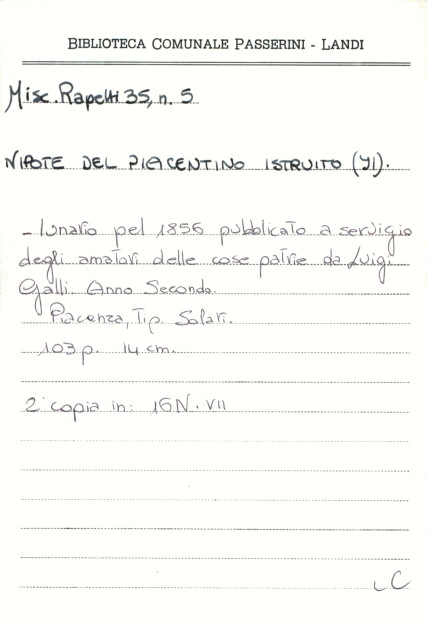 BIBLIOTECA COMUNALE PASSERINI - LANDI
Misc. Rapetti 35, n. 5
NIPOTE DEL PIACENTINO ISTRUITO (Il).
- lunario pel 1856 pubblicato a servigio
degli amatori delle cose patrie da Luigi
Galli. Anno Secondo.
Piacenza, Tip. Solari.
103 p. 14 cm.
2ª copia in: 16 N. VII
LC